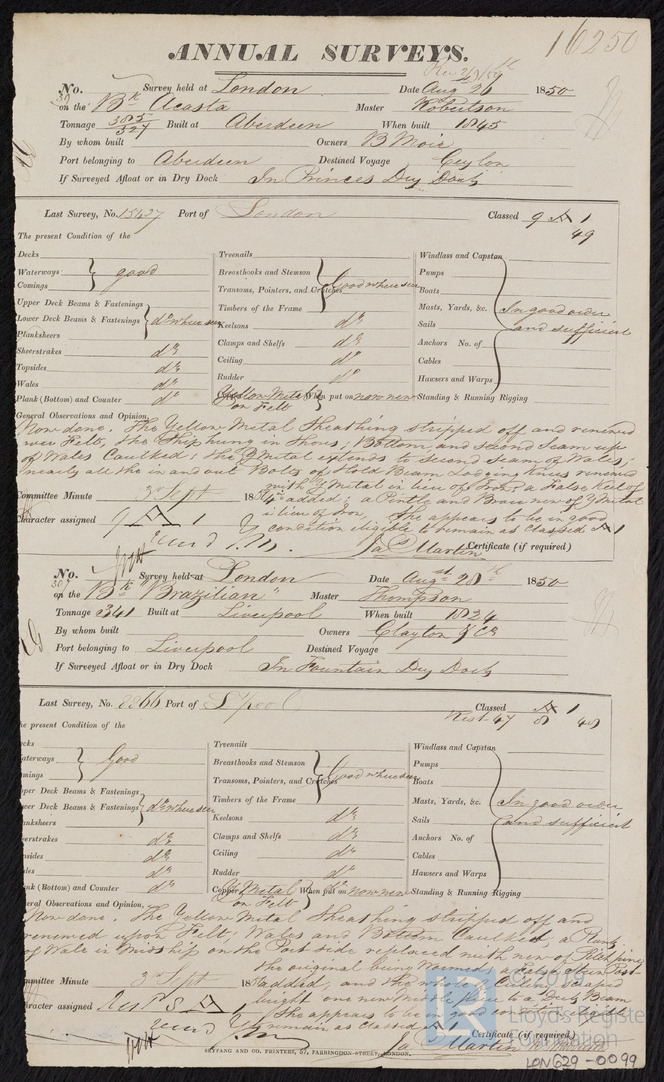 16250
ANNUAL SURVEYS.
No. 30 Survey held at London Date Aug 26 1850
on the Bk Acasta Master Robertson
Tonnage 385/327 Built at Aberdeen When built 1845
By whom built Owners B Moir
Port belonging to Aberdeen Destined Voyage Ceylon
If Surveyed Afloat or in Dry Dock In Princes Dry Dock
Last Survey, No. 15427 Port of London Classed 9 A 1
49
The present Condition of the
Decks
Waterways } good
Comings
Upper Deck Beams & Fastenings
Lower Deck Beams & Fastenings } do where seen
Planksheers
Sheerstrakes do
Topsides do
Wales do
Plank (Bottom) and Counter do
Treenails
Breasthooks and Stemson
Transoms, Pointers, and Crutches } Good where seen
Timbers of the Frame
Keelsons do
Clamps and Shelfs do
Ceiling do
Rudder do
Yellow Metal When put on now new
on Felt
Windlass and Capstan
Pumps
Boats
Masts, Yards, &c. In good order
Sails and sufficient
Anchors No. of
Cables
Hawsers and Warps
Standing & Running Rigging
General Observations and Opinion,
Now done. The Yellow Metal Sheathing stripped off and renewed
over Felt, the Ship hung in Shores, Bottom and second Seam up
of Wales Caulked: the Y Metal extends to second seam of Wales;
nearly all the in and out Bolts of Hold Beam Lodging Knees renewed
with Y Metal in lieu of Iron; a False Keel of
4in added; a Pintle and Brace new of Y Metal
in lieu of Iron, She appears to be in good
condition eligible to remain as Classed A 1
Committee Minute 3 Sept 18
Character assigned 9 A 1
Jas Martin Certificate (if required)
No. 307 Survey held at London Date Augst 28th 1850
on the Bk "Brazilian" Master Thompson
Tonnage 341 Built at Liverpool When built 1824
By whom built Owners Clayton & Co
Port belonging to Liverpool Destined Voyage
If Surveyed Afloat or in Dry Dock In Fountain Dry Dock
Last Survey, No. 8866 Port of L'pool Classed A 1
Rest. 47 8 48
he present Condition of the
cks
aterways } Good
mings
pper Deck Beams & Fastenings
wer Deck Beams & Fastenings } do where seen
anksheers
erstrakes do
psides do
les do
nk (Bottom) and Counter do
Treenails
Breasthooks and Stemson
Transoms, Pointers, and Crutches } Good where seen
Timbers of the Frame
Keelsons do
Clamps and Shelfs do
Ceiling do
Rudder do
Copper Y Metal When put on now new
on Felt
Windlass and Capstan
Pumps
Boats
Masts, Yards, &c. In good order
Sails and sufficient
Anchors No. of
Cables
Hawsers and Warps
Standing & Running Rigging
eral Observations and Opinion,
Now done. The Yellow Metal Sheathing stripped off and
renewed upon Felt, Wales and Bottom Caulked, a Plank
of Wale in Midship on the Port side replaced with new of Pitch pine
the original being Wormed, a False
added, and the whole Ceiling scraped
bright one new Middle piece to a Deck Beam
She appears to be in good condition
remain as classed A 1
mmittee Minute 3 Sept 18
aracter assigned Rest 8 A 1
Jas Martin Certificate (if required)
SEYFANG AND CO. PRINTERS, 57, FARRINGDON-STREET, LONDON.
© 2019
Lloyd's Register
Foundation
LON629-0099